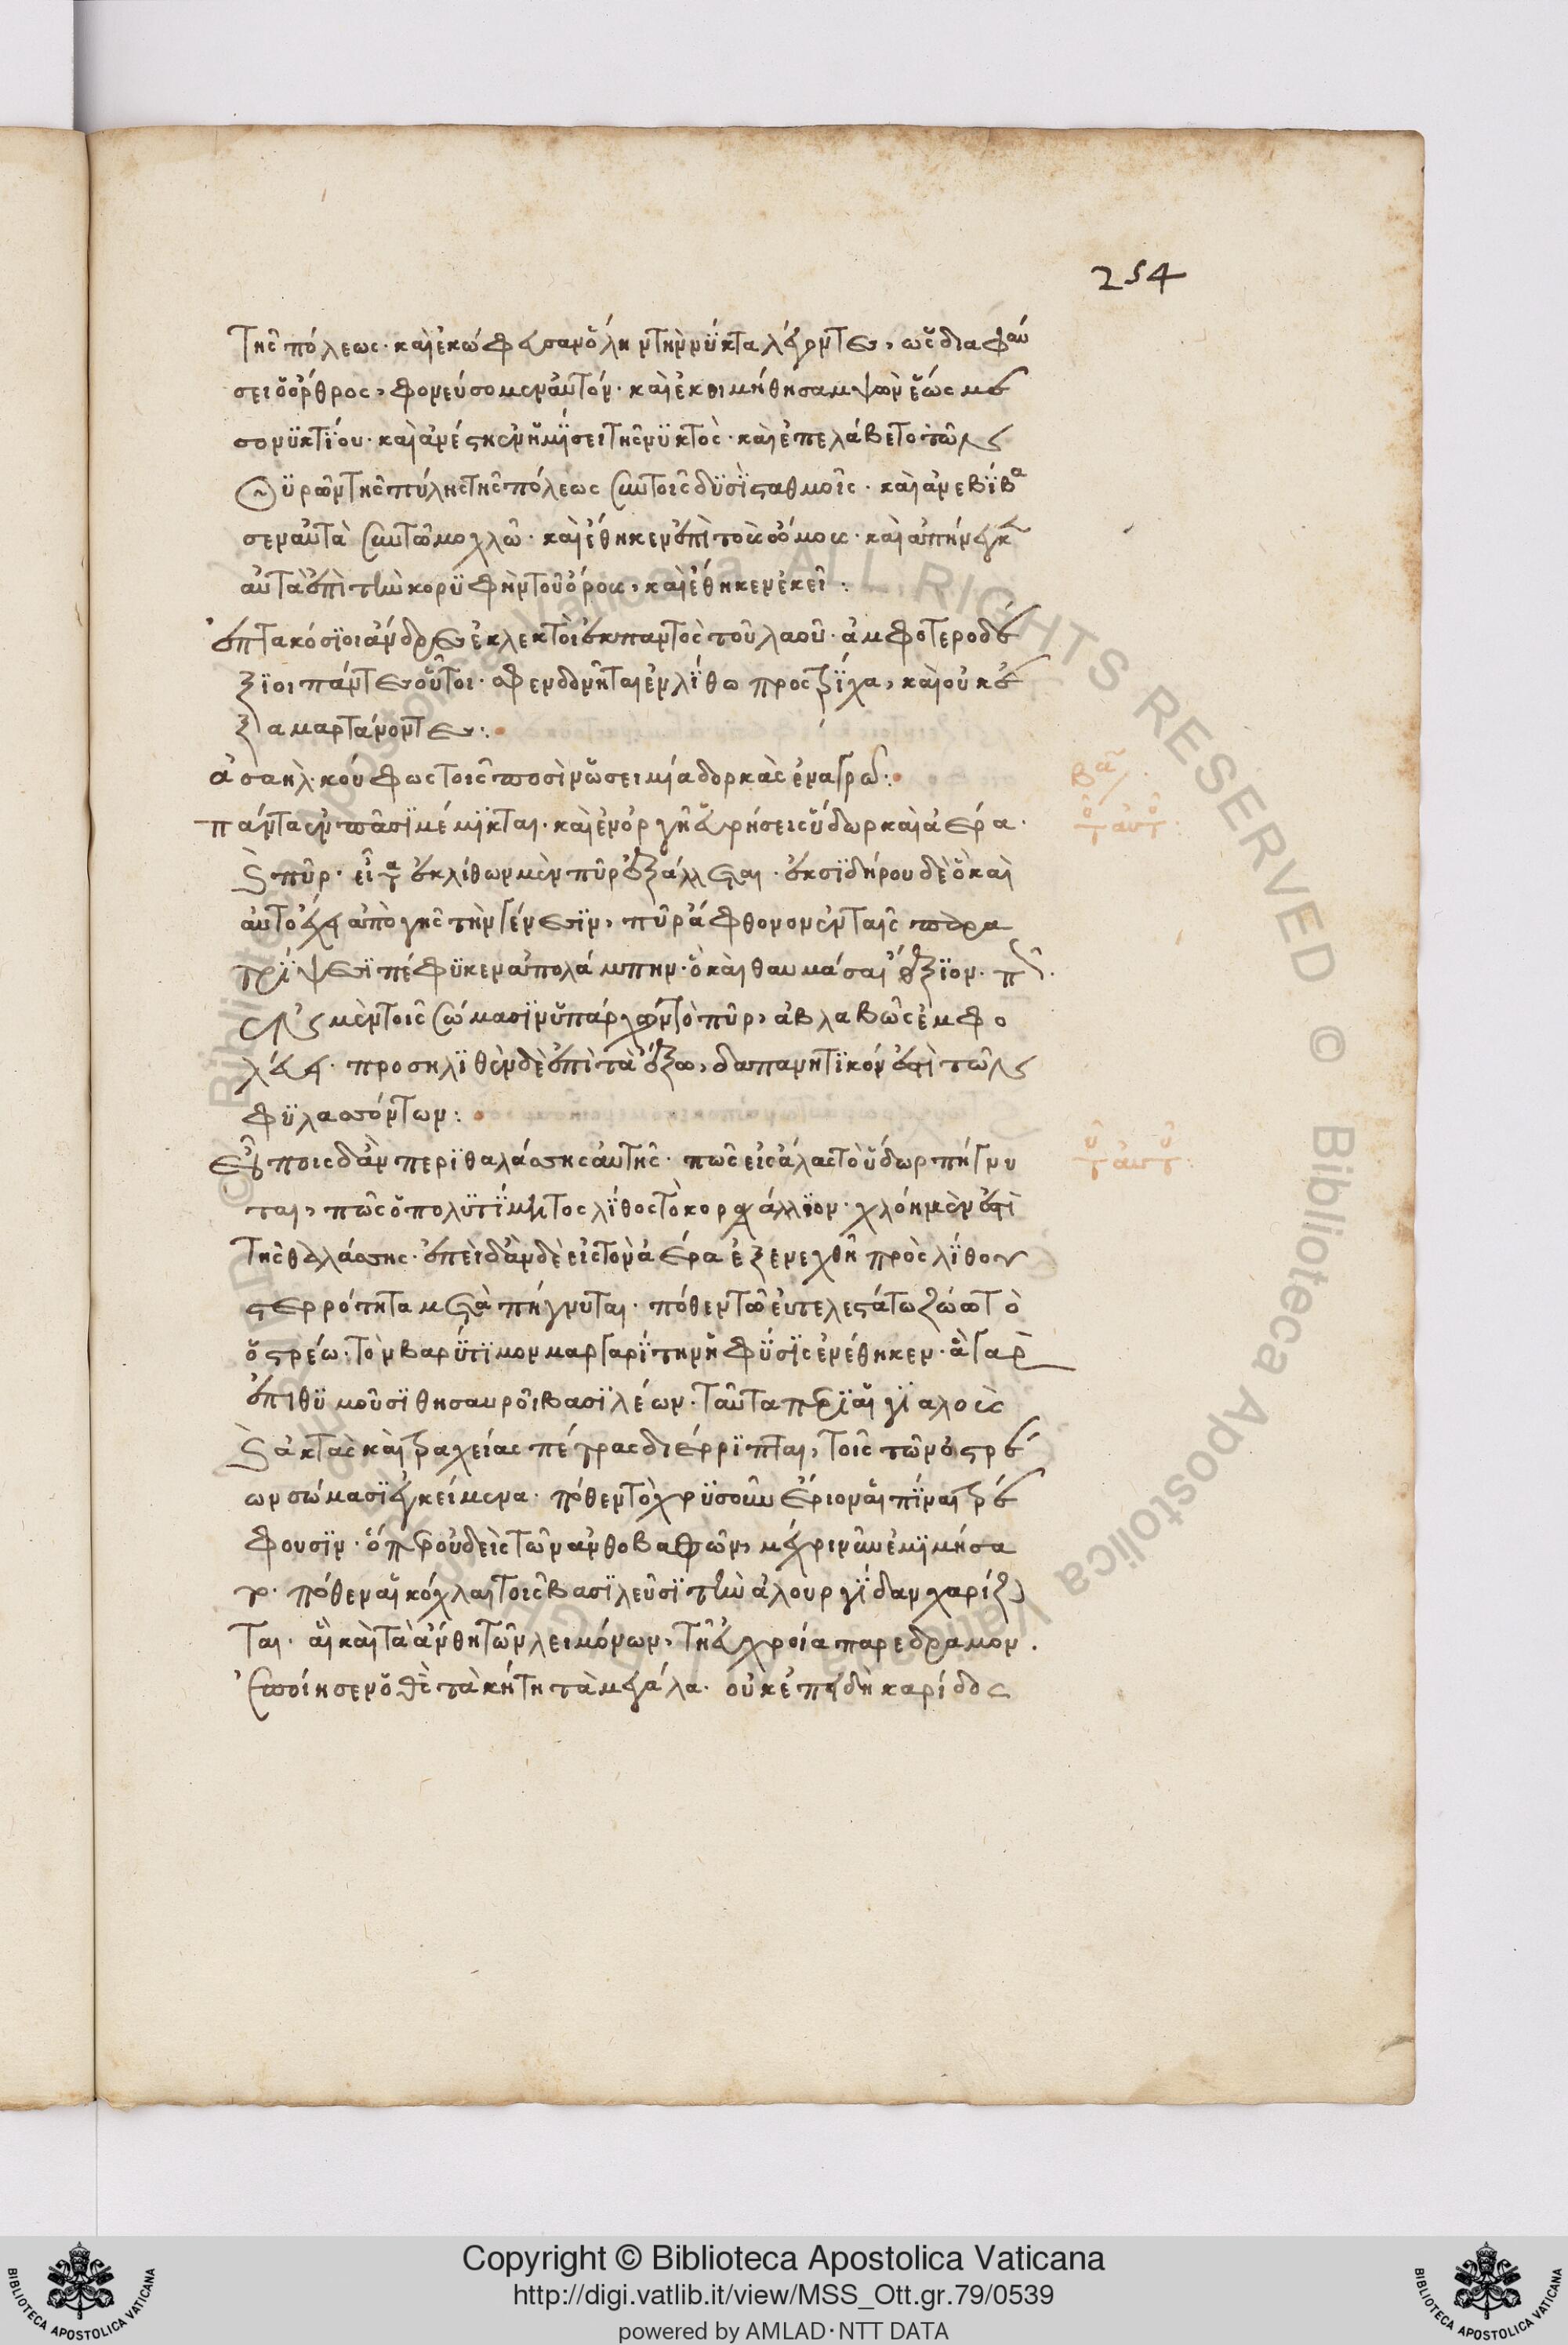 254
τῆς πόλεως· καὶ ἐκώφευσαν ὅλην τὴν νύκτα λέγοντες, ὡς διαφαύ
σει ὁ ὄρθρος, φονεύσομεν αὐτόν· καὶ ἐκοιμήθη σαμψὼν ἕως με
σονυκτίου· καὶ ἀνέστη ἐν ἡμίσει τῆς νυκτὸς· καὶ ἐπελάβετο τῶν
θυρῶν τῆς πύλης τῆς πόλεως σὺν τοῖς δυσὶ σταθμοῖς· καὶ ἀνεβίβα
σεν αὐτὰ σὺν τῶ μοχλῶ· καὶ ἔθηκεν ἐπὶ τοὺς ὤμους· καὶ ἀπήνεγκεν
αὐτὰ ἐπὶ τὴν κορυφὴν τοῦ ὄρους, καὶ ἔθηκεν ἐκεῖ:
ἑπτακόσιοι ἄνδρες ἐκλεκτοὶ ἐκ παντὸς τοῦ λαοῦ· ἀμφοτεροδέ
ξιοι πάντες οὗτοι· σφενδονῆται ἐν λίθω πρὸς τρίχα, καὶ οὐκ ἐ
ξαμαρτάνοντες:
ἀσαὴλ κούφως τοῖς ποσὶν ὡσεὶ μία δορκὰς ἐν ἀγρῶ:
Βα
πάντα ἐν πᾶσι μέμικται· καὶ ἐν ὀργῆ εὑρήσεις ὕδωρ καὶ ἀέρα·
καὶ πῦρ· εἴγε ἐκ λίθων μὲν πῦρ ἐξάλλεται· ἐκ σιδήρου δὲ ὃ καὶ
αὐτὸ ἔχει ἀπὸ γῆς τὴν γένεσιν, πῦρ ἄφθονον ἐν ταῖς παρα
τρίψεσι πέφυκεν ἀπολάμπειν· ὃ καὶ θαυμάσαι ἄξιον· πῶς
μὲν τοῖς σώμασιν ὑπάρχον τὸ πῦρ, ἀβλαβῶς ἐμφω
λεύει· προσκληθὲν δὲ ἐπὶ τὰ ἔξω, δαπανητικόν ἐστι τῶν
φυλασσόντων:
εἴποις δ' ἂν περὶ θαλάσσης αὐτῆς· πῶς εἰς ἅλας τὸ ὕδωρ πήγνυ
ται, πῶς ὁ πολυτίμητος λίθος τὸ κοράλλιον· χλόη μὲν ἐστὶ
τῆς θαλάσσης· ἐπειδὰν δὲ εἰς τὸν ἀέρα ἐξενεχθῆ πρὸς λίθου
στερρότητα μεταπήγνυται· πόθεν τῶ εὐτελεστάτω ζώω τῶ
ὀστρέω· τὸν βαρύτιμον μαργαρίτην ἡ φύσις ἐνέθηκεν· ἃ γὰρ
ἐπιθυμοῦσι θησαυροὶ βασιλέων· ταῦτα περὶ αἰγιαλοὺς
καὶ ἀκτὰς καὶ τραχείας πέτρας διέρριπται, τοῖς τῶν ὀστρέ
ων σώμασι ἐγκείμενα· πόθεν τὸ χρυσοῦν ἔριον αἱ πίναι τρέ
φουσιν· ὅπερ οὐδεὶς τῶν ἀνθοβαφῶν, μέχρι νῦν ἐμιμήσα
το· πόθεν αἱ κόχλαι τοῖς βασιλεῦσι τὴν ἁλουργίδαν χαρίζον
ται· αἳ καὶ τὰ ἄνθη τῶν λειμόνων, τῆ εὐχροία παρέδραμον.
ἐποίησεν ὁ θεὸς τὰ κήτη τὰ μεγάλα· οὐκ ἐπειδὴ καρίδος
Copyright © Biblioteca Apostolica Vaticana
http://digi.vatlib.it/view/MSS_Ott.gr.79/0539
powered by AMLAD·NTT DATA
BIBLIOTECA APOSTOLICA VATICANA
BIBLIOTECA APOSTOLICA VATICANA